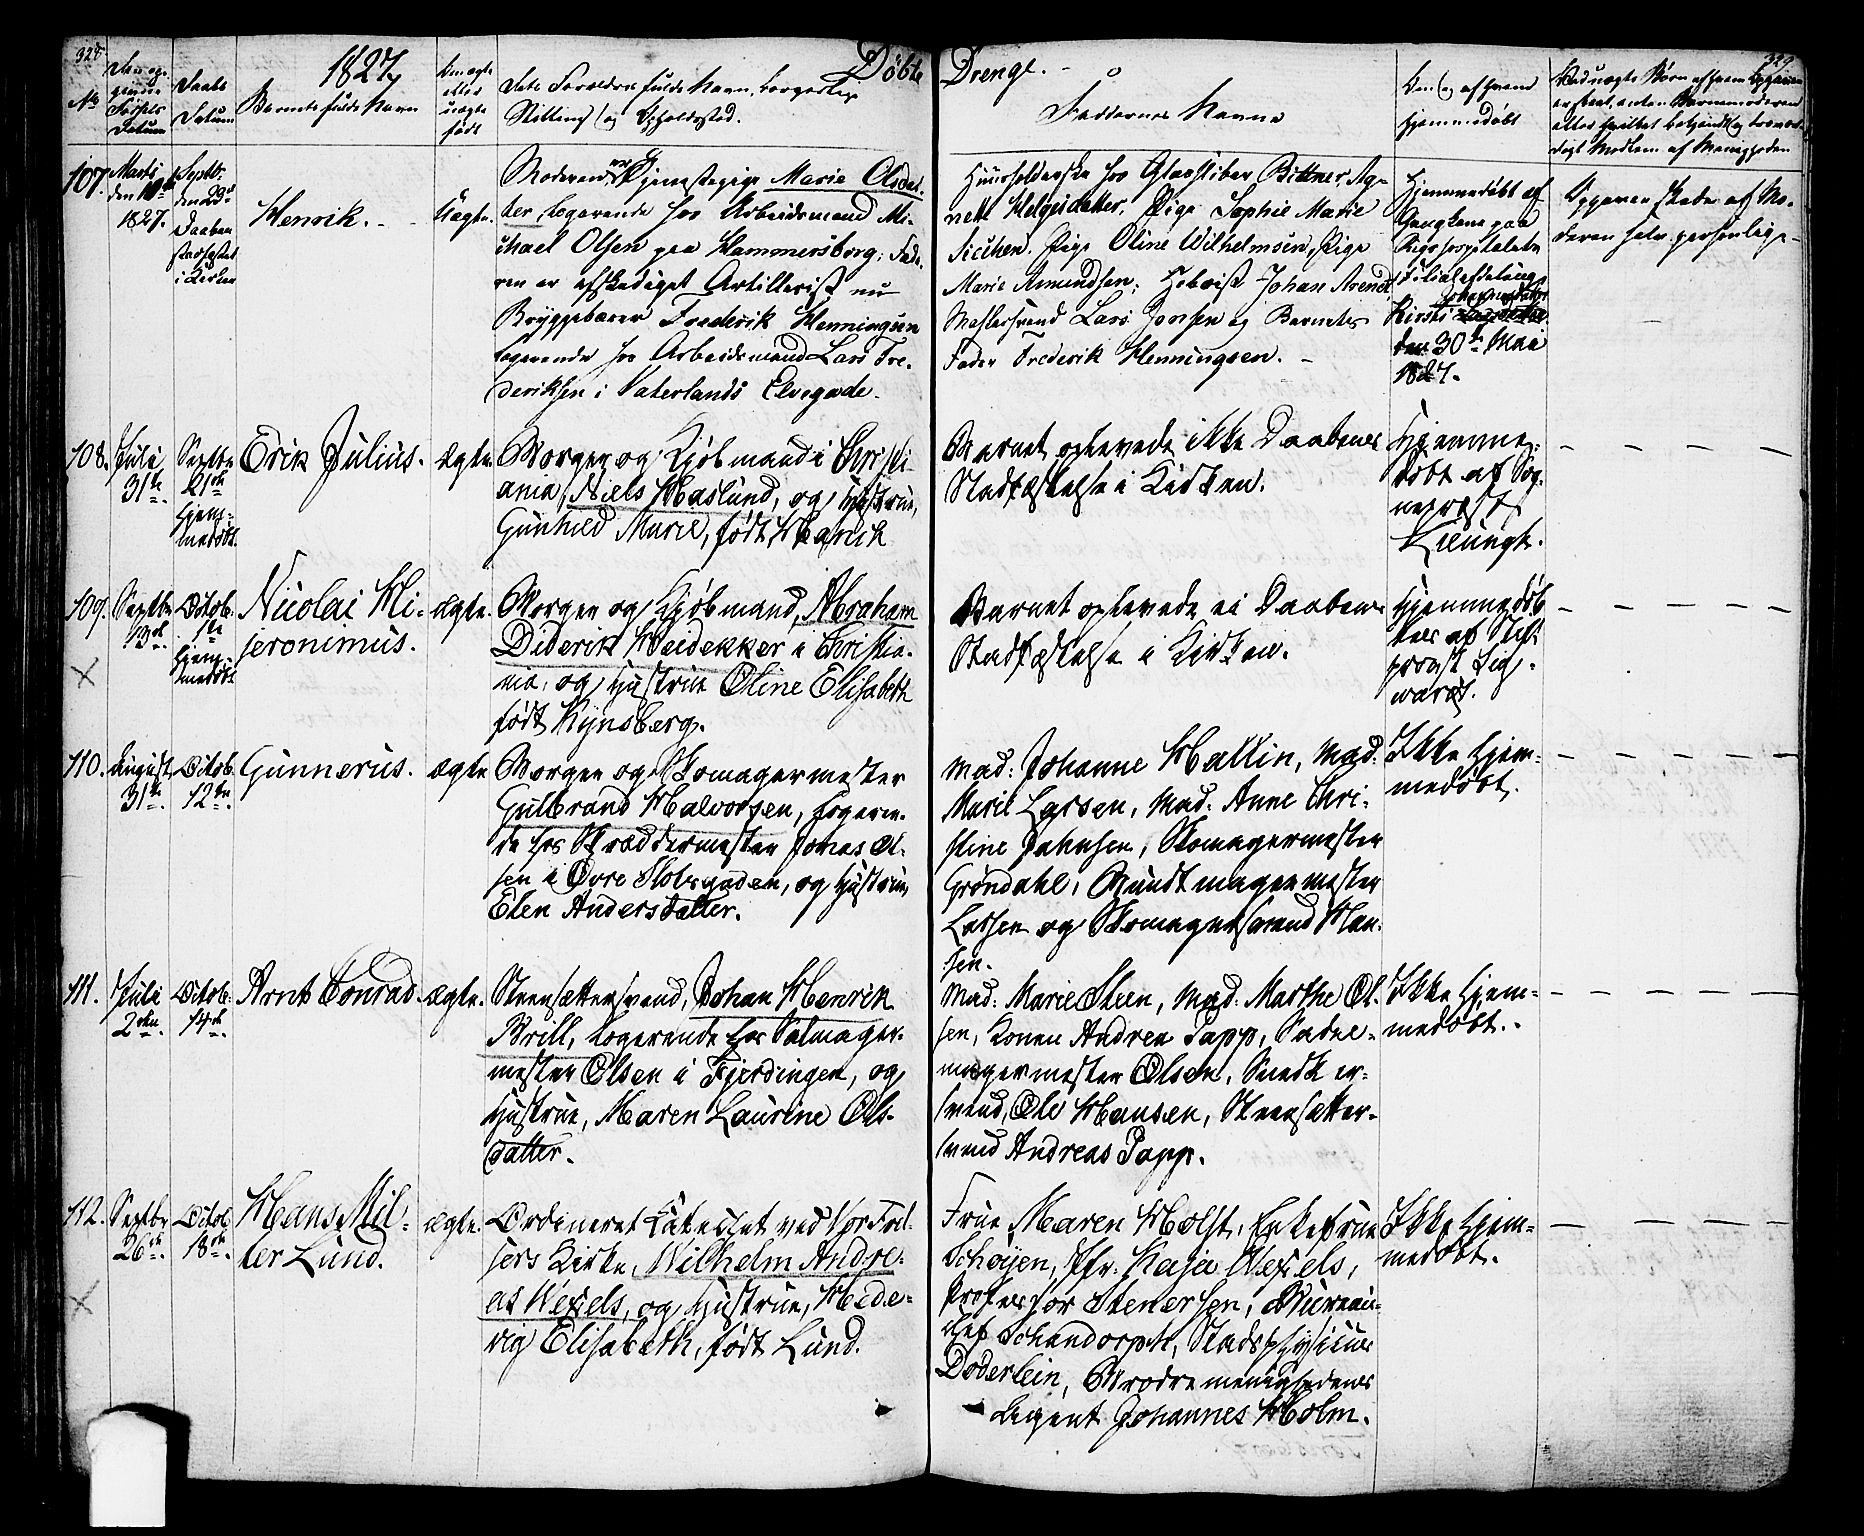 328
1827
Døbte
Drenge.
329
No
Den op-
givne
Fødsels
Datum
Daabs
Datum
Barnets fulde Navn
Om ægte
eller
uægte
født
Dets Forældres fulde Navn, borgerlige
Stilling og Opholdssted.
Faddernes Navne
Om og af hvem
hjemmedøbt
107.
Martii
den 10de
1827.
Septbr.
den 23de
Daaben
stadfæstet
i Kirken
Henrik.
Uægte.
Moderen er Tjenestepige Marie Olsdat-
ter, logerende hos Arbeidsmand Mi-
chael Olsen paa Hammersborg; Fade-
ren er afskediget Artillerist, nu
Bryggebærer Frederik Henningsen
logerende hos Arbeidsmand Lars Fre-
deriksen i Vaterlands Elvegade.
Huusholderske hos Glassliber Bittner, Ag-
nett Helgesdatter. Pige Sophie Marie
Pige Oline Wilhelmsen, Pige
Marie Amundsen; Hoboist Johan Arendt,
Lars Jonsen og Barnets
Fader Frederik Henningsen.
Hjemmedøbt af
Gangkone paa
Rigshospitalets
Filialafdeling
Johannesdatter
Kirsti
den 30te Mai
1827.
Opgaven skede af Mo-
deren selv personlige
108.
Juli
31te
Septbr
21de
hjem-
medøbt
Erik Julius.
ægte.
Borger og Kjøbmand i Christi-
ania Niels Haslund, og Hustrue,
Gunhild Marie, født
Barnet oplevede ikke Daabens
Stadfæstelse i Kirken.
Hjemme-
døbt af Sog-
neprest
109.
Septbr
13de
Octob.
1te
hjem-
medøbt
Nicolai Hi-
jeronimus.
ægte.
Borger og Kjøbmand, Abraham
Diderik Heidekker i Christia-
nia, og Hustrue Oline Elisabeth
født Rynsberg.
Barnet oplevede ei Daabens
Stadfæstelse i Kirken.
Hjemmedøb
tes af Stift
provst Lig-
110.
August
31te
Octob.
12te
Gunnerus.
ægte
Borger og Skomagermester
Gulbrand Halvorsen, logeren-
de hos Skræddermester Jonas Ol-
sen i Øvre Slotsgaden, og Hustrue,
Elen Andersdatter.
Mad: Johanne Hallin, Mad:
Marie Larsen, Mad: Anne Chri-
stine Jahnsen, Skomagermester
Grøndahl, Bundtmagermester
Larsen og Skomagersvend Han-
sen.
Ikke hjem-
medøbt.
111.
Juli
2den
Octob:
14de
Arnt Conrad.
ægte.
Steensættersvend, Johan Henrik
Brill, logerende hos Salmager-
mester Olsen i Fjerdingen, og
Hustrue, Maren Laurine Ols-
datter.
Mad: Marie Steen, Mad: Marthe Ol-
sen, Konen Andrea Papp, Sadel-
magermester Olsen, Snedker-
svend, Ole Hansen, Steensætter-
svend Andreas Papp.
Ikke hjem-
medøbt.
112.
Septbr
26de
Octob.
18de
Hans Mil-
ter Lund.
ægte.
Ordineret Catechet ved Vor Frel-
sers Kirke, Wilhelm Andre-
as Wexels, og Hustrue, Hede-
vig Elisabeth, født Lund.
Frue Maren Holst, Enkefrue
Schøyen, Jfr. Kaja Wexels,
Professor Stenersen, Bureau-
chef Schandorph, Stadsphysicus
Døderlein, Brødremenighedens
Agent Johannes Holm.
Ikke hjem-
medøbt.